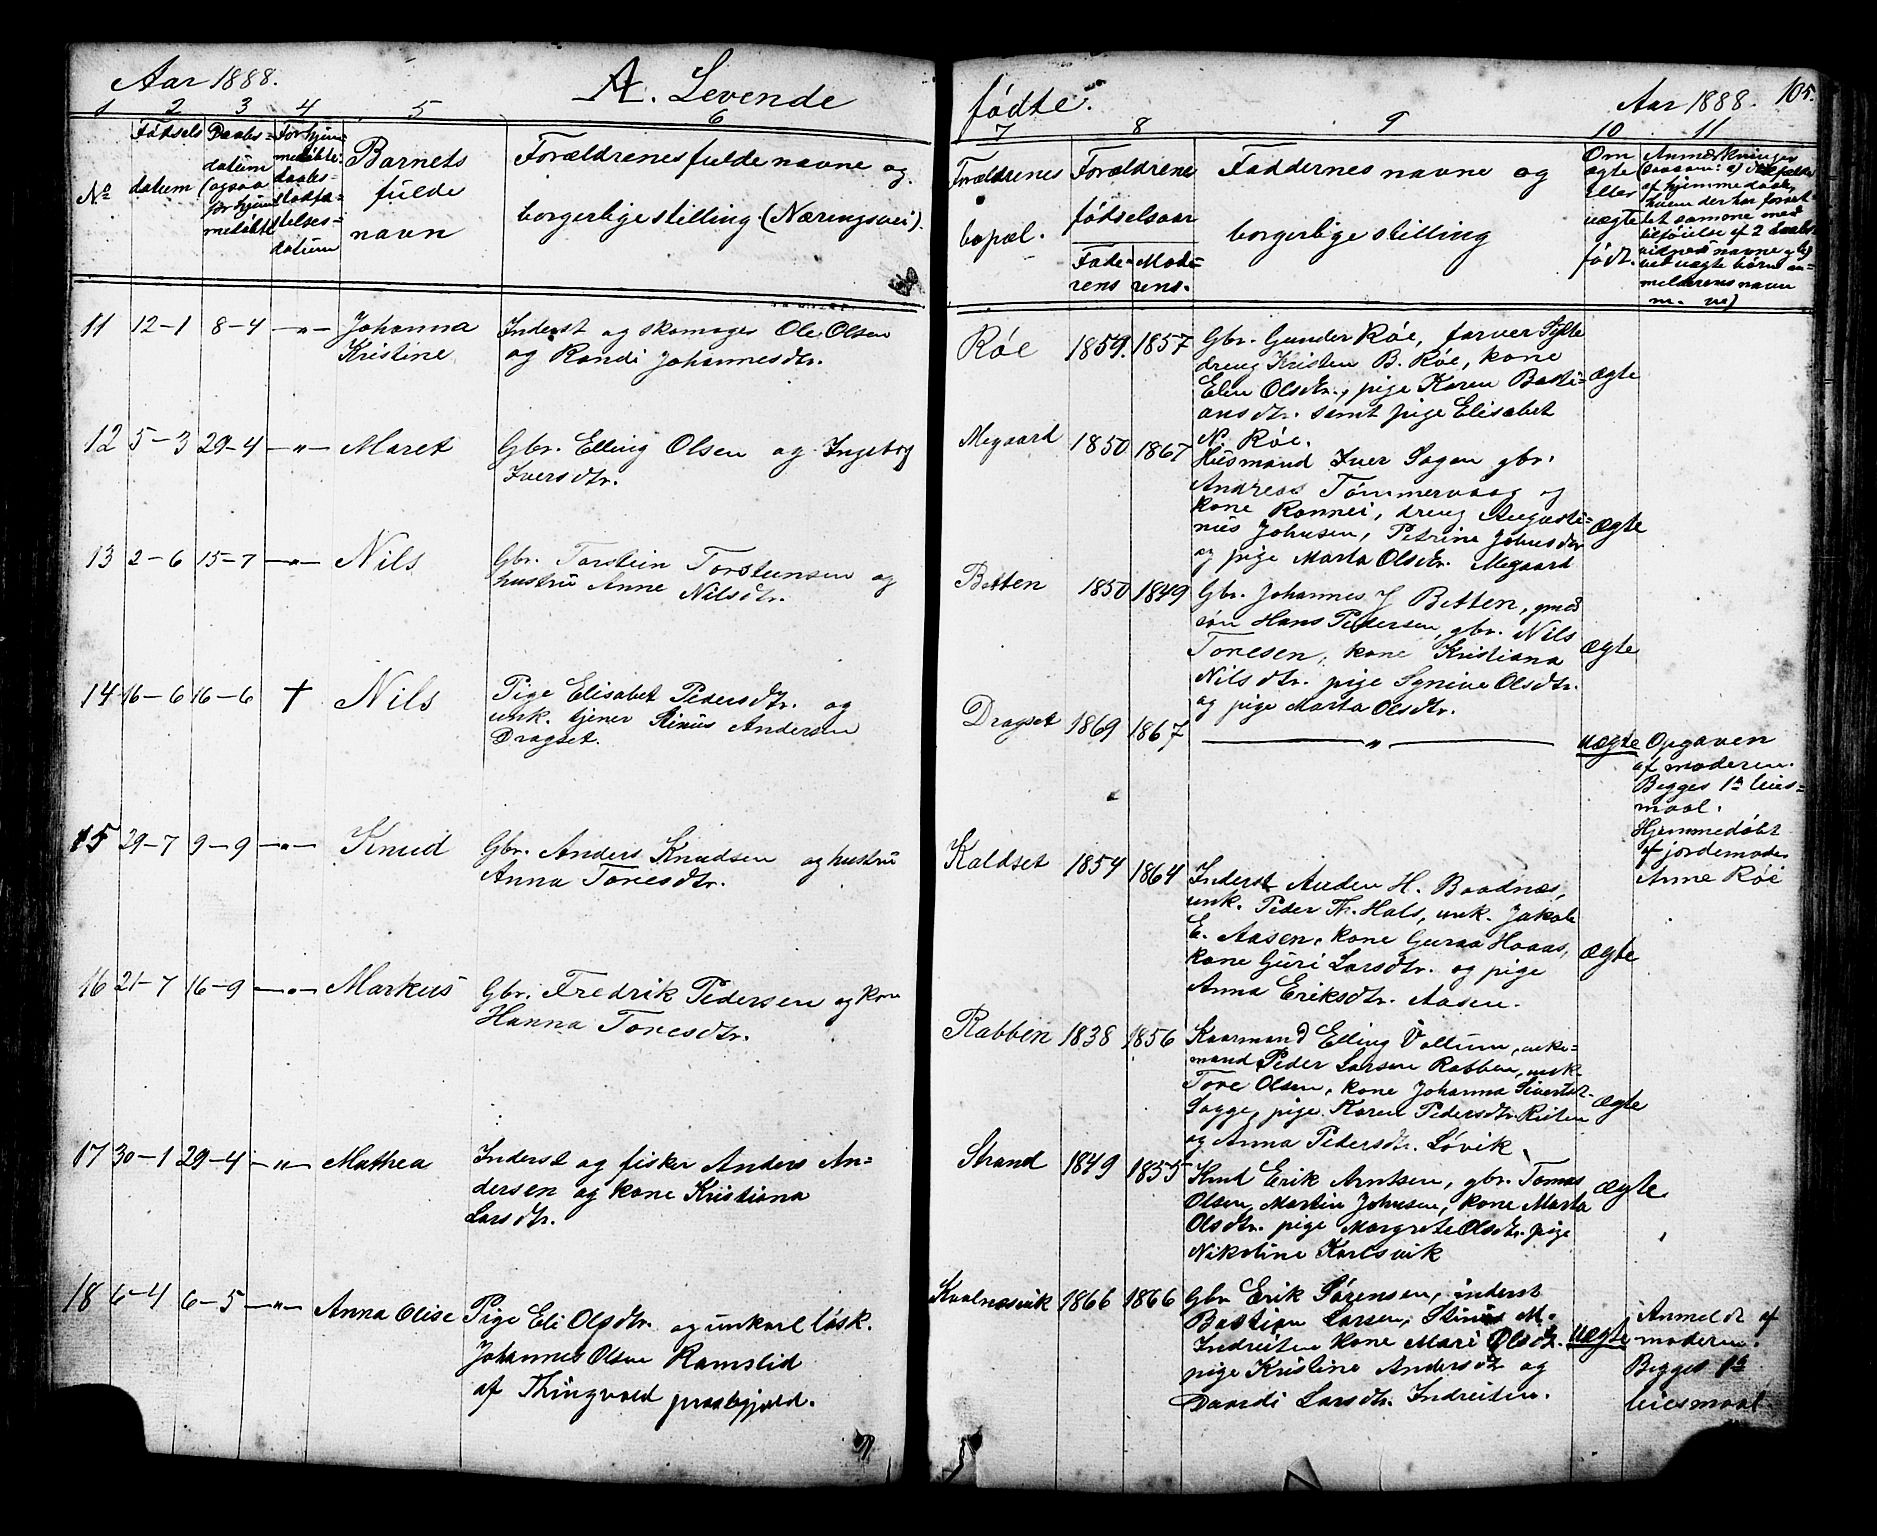 Aar 1888. A. Levende
1 2 3 4 5 6
No
Fødsels
datum
Daabs-
datum
(ogsaa
for hjem
medøbte
For hjem-
medøbte:
daabs-
stadfæ-
stelses-
datum
Barnets
fulde
navn
Forældrenes fulde navne og
borgerlige stilling (Næringsvei).
11 12-1 8-4 -"- Johanna
Kristine
Inderst og skomager Ole Olsen
og Randi Johannesdtr.
12 5-3 29-4 -"- Maret
Gbr. Elling Olsen og Ingeborg
Iversdtr.
13 2-6 15-7 -"- Nils
Gbr. Torstein Torstensen og
hustru Anne Nilsdtr.
14 16-6 16-6 † Nils
Pige Elisabet Pedersdtr. og
unk. tjener Stinus Andersen
Dragset.
15 29-7 9-9 -"- Knud
Gbr. Anders Knudsen og hustru
Anna Toresdtr.
16 21-7 16-9 -"- Markus
Gbr. Fredrik Pedersen og kone
Hanna Toresdtr.
17 30-1 29-4 -"- Mathea
Inderst og fisker Anders An-
dersen og kone Kristiana
Larsdtr.
18 6-4 6-5 -"- Anna Olise
Pige Eli Olsdtr. og unkarl løsk.
Johannes Olsen Ramslid
af Thingvold præstegjæld.
fødte. Aar 1888. 105.
7 8 9 10 11
Forældrenes
bopæl.
Forældrene
fødselsaar
Fade-
rens
Mode-
rens.
Faddernes navne og
borgerlige stilling
Om
ægte
eller
uægte
født.
Anmærkninger
af hjemmedaab,
hvem der har forret-
tet samme med
tilføielse af 2 daabs-
vidners navne og b)
ved uægte børn an-
melderens navn
m. m)
Røe 1859. 1857
Gbr. Gunder Røe, farver Fylte
dreng Kristen B. Røe, kone
Elen Olsdtr., pige Karen Basti-
ansdtr. samt pige Elisabet
N. Røe.
ægte
Megaard 1850 1867
Husmand Iver Sagen gbr.
Andreas Tømmervaag og
kone Rannei, dreng Augusti-
nus Johnsen, Petrine Johnsdtr
og pige Marta Olsdtr. Megaard
ægte
Betten 1850 1849
Gbr. Johannes J Betten, gmds
søn Hans Pedersen, gbr. Nils
Toresen, kone Kristiana
Nilsdtr. pige Synive Olsdtr.
og pige Marta Olsdtr.
ægte
Dragset 1869 1867 -"-
uægte
Opgaven
af moderen.
Begges 1ste leies-
maal.
Hjemmedøbt
af jordemoder
Anne Røe
Kaldset 1854 1864
Inderst Auden H. Baadnæs,
unk. Peder Th. Hals, unk. Jakob
E. Aasen, kone Guraa Haaas,
kone Guri Larsdtr. og pige
Anna Eriksdtr. Aasen.
ægte
Rabben 1838 1856
Kaarmand Elling Vollum, enke-
mand Peder Larsen Rabben, unk.
Tore Olsen, kone Johanna Sivertsd.
Sagge, pige Karen Pedersdtr. Reiten
og Anna Pedersdtr. Løvik.
ægte
Strand 1849 1855
Knut Erik Arntsen, gbr. Tomas
Olsen, Martin Johnsen, kone Marta
Olsdtr. pige Margrete Olsdtr. pige
Nikoline Karlsvik
ægte
Kvalnæsvik 1866 1866
Gbr. Erik Sørensen, inderst
Bastian Larsen, Stinus M.
Indreiten kone Mari Olsdtr.
pige Kristine Andersdtr og
Daardi Larsdtr. Indreiten.
uægte
Anmeldt af
moderen.
Begges 1ste
leiesmaal